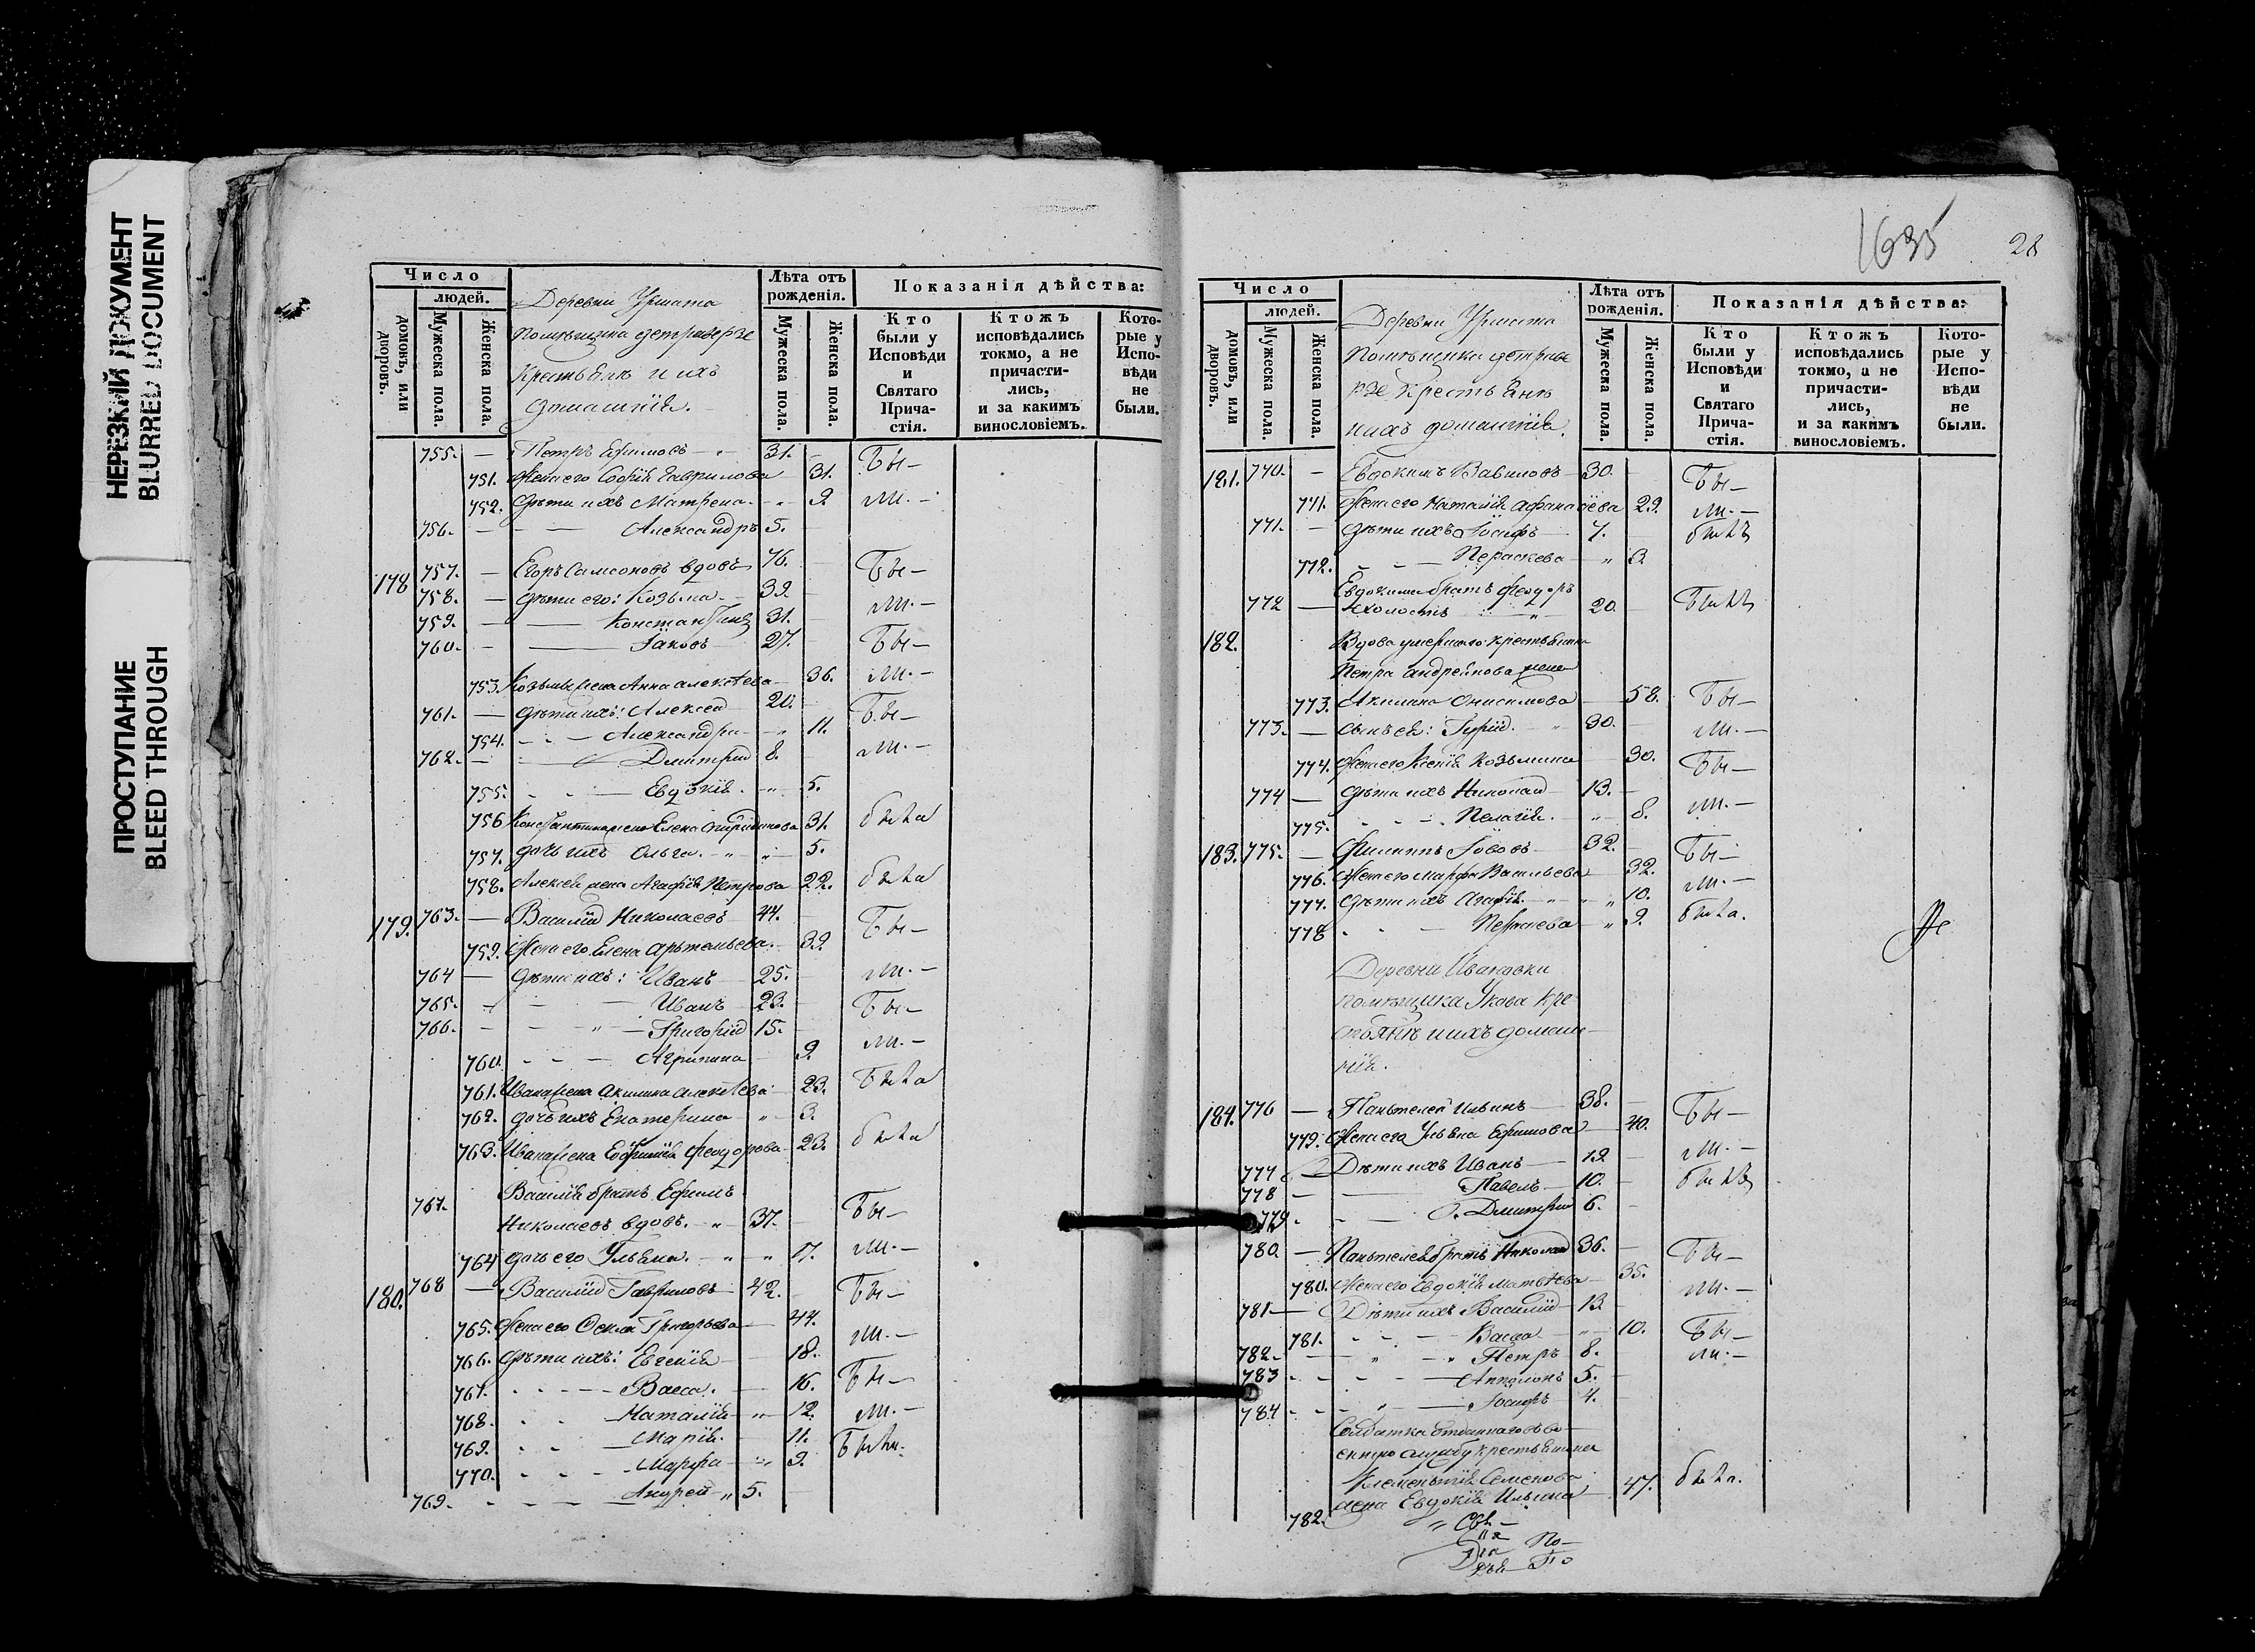 НЕРЕЗКИЙ ДОКУМЕНТ
BLURRED DOCUMENT
ПРОСТУПАНИЕ
BLEED THROUGH
Число
людей.
домовъ, или дворовъ.
Мужеска пола.
Женска пола.
Деревни Урмата
помѣщика
крестьянъ и ихъ
домашнія.
Лѣта отъ рожденія.
Мужеска пола.
Женска пола.
Показанія дѣйства:
Кто были у Исповѣди и Святаго Прича-стія.
Ктожъ исповѣдались токмо, а не причасти-лись, и за какимъ винословіемъ.
Кото-рые у Испо-вѣди не были.
755. — Петръ Ефимовъ 31. Бы—
751. Жена его Софія Гаврилова 31.
752. Дѣти ихъ Матрена 9 ли. —
756. — Александръ 5.
178 757. — Егоръ Самсоновъ вдовъ 76. Бы—
758. — Дѣти его: Козьма 39.
759. — Константинъ 31. ли. —
760. — Іаковъ 27. Бы—
753. Козьмы жена Анна Алексѣева 36. ли. —
761. — Дѣти ихъ: Алексей 20. Бы—
754. Александра 11.
762. — Дмитрій 8. ли. —
755. Евдокія 5.
756 Константина жена Елена Спиридонова 31. была
757. дочь ихъ Ольга 5.
758. Алексея жена Агафія Петрова 22. была
179. 763. — Василій Николаевъ 44. Бы—
759. Жена его Елена Артемьева 39.
764 — Дѣти ихъ: Иванъ 25. ли. —
765. Иванъ 23. Бы—
766. Григорій 15.
760. Агрипина 9. ли. —
761. Ивана жена Акилина Алексѣева 23. Была
762. дочь ихъ Екатерина 3.
763. Ивана жена Евфимія Феодорова 23. была
Василія братъ Ефимъ
767. Николаевъ вдовъ. 37. Бы—
764 дочь его Ульяна. 17. ли. —
180. 768 — Василій Гавриловъ 42. Бы—
765. Жена его Фекла Григорьева 44.
766. Дѣти ихъ: Евгенія 18. ли. —
767. Васса. 16. Бы—
768. Наталія 12. ли. —
769. Марія. 11.
770. Марфа 9. Были.
769. Андрей 5.
1635
28
Число
людей.
домовъ, или дворовъ.
Мужеска пола.
Женска пола.
Деревни Урмата
помѣщика
крестьянъ
и ихъ домашнія.
Лѣта отъ рожденія.
Мужеска пола.
Женска пола.
Показанія дѣйства:
Кто были у Исповѣди и Святаго Прича-стія.
Ктожъ исповѣдались токмо, а не причасти-лись, и за какимъ винословіемъ.
Кото-рые у Испо-вѣди не были.
181. 770. — Евдокимъ Вавиловъ 30. Бы—
771. Жена его Наталія Афанасіева 29. ли. —
771. — Дѣти ихъ Іосифъ 7. былъ
772. Параскева 3
Евдокима братъ Феодоръ
772 — холостъ 20. Былъ
182. Вдова умершаго крестьянина
Петра Андреянова жена
773. Акилина Онисимова 58. Бы—
773. — Сынъ ея: Гурій. 30. ли. —
774. Жена его Ксенія Козьмина 30. Бы—
774 — Дѣти ихъ Николай 13.
775. Пелагія. 8. ли. —
183. 775. — Филиппъ Іововъ 32. Бы—
776. Жена его Марфа Васильева 32.
777. Дѣти ихъ Агафія 10. ли. —
778 Параскева 9. была.
Деревни Ивановки
помѣщика Укова кре-
стьянъ и ихъ домаш-
нія.
184. 776 — Пантелей Ильинъ 38. Бы—
779. Жена его Ульяна Ефимова 40.
777 — Дѣти ихъ Иванъ 12 ли. —
778 — Павелъ 10. былъ
779. Дмитрій 6.
780. — Пантелея братъ Николай 36. Бы—
780. Жена его Евдокія Матвѣева 35.
781 — Дѣти ихъ Василій 13. ли. —
781. Васса 10. Бы—
782. Петръ 8. ли. —
783 Апполонъ 5.
784 Іосифъ 4.
Солдатка отданнаго въ во-
енную службу крестьянина
Клементія Семенова
782. жена Евдокія Ильина 47. была.